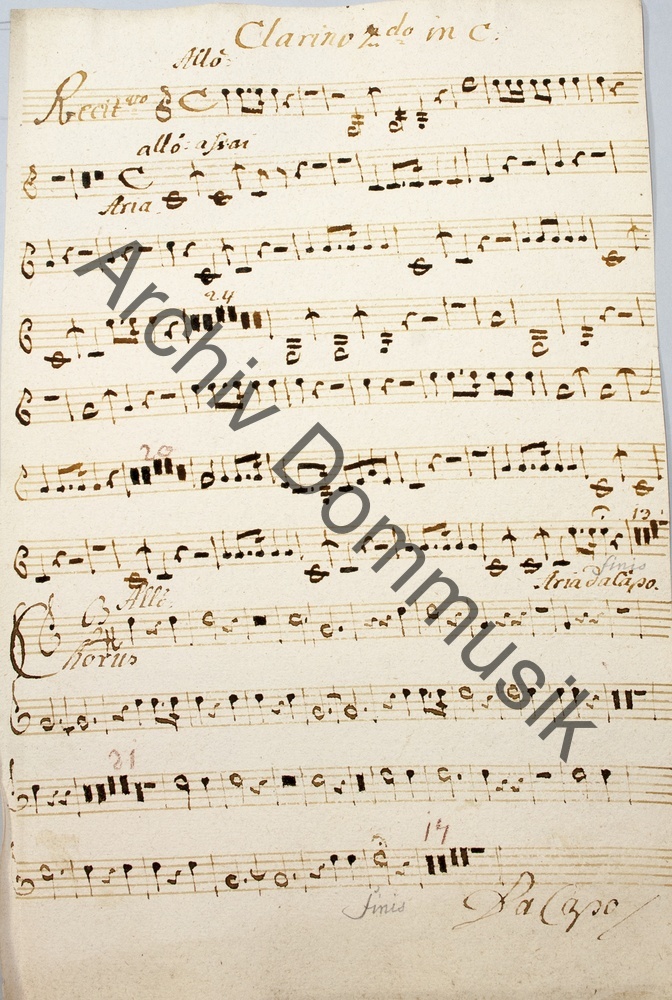 Clarino 2do in C.
Allo:
Recit:vo
C
allo: assai
C
Aria.
24
20
13
finis
Aria da Capo.
Allo:
Chorus
21
17
finis
Da Capo
Archiv Dommusik